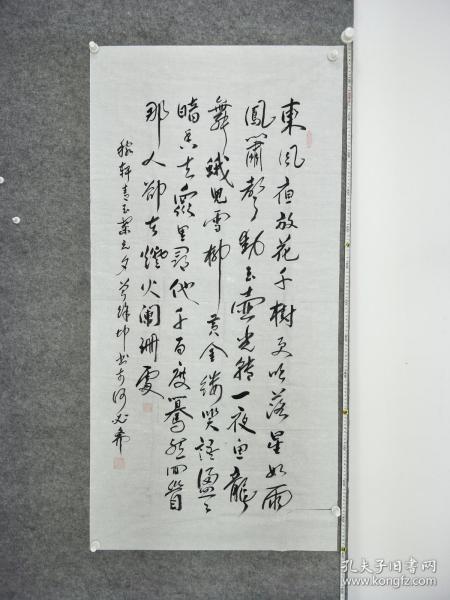 東风夜放花千樹更吹落星如雨
鳳簫聲動玉壺光转一夜鱼龍
舞蛾儿雪柳黄金缕笑語盈〻
暗香去衆里尋他千百度驀然回首
那人卻在燈火阑珊處
稼軒青玉案元夕
孔夫子旧书网
www.kongfz.com